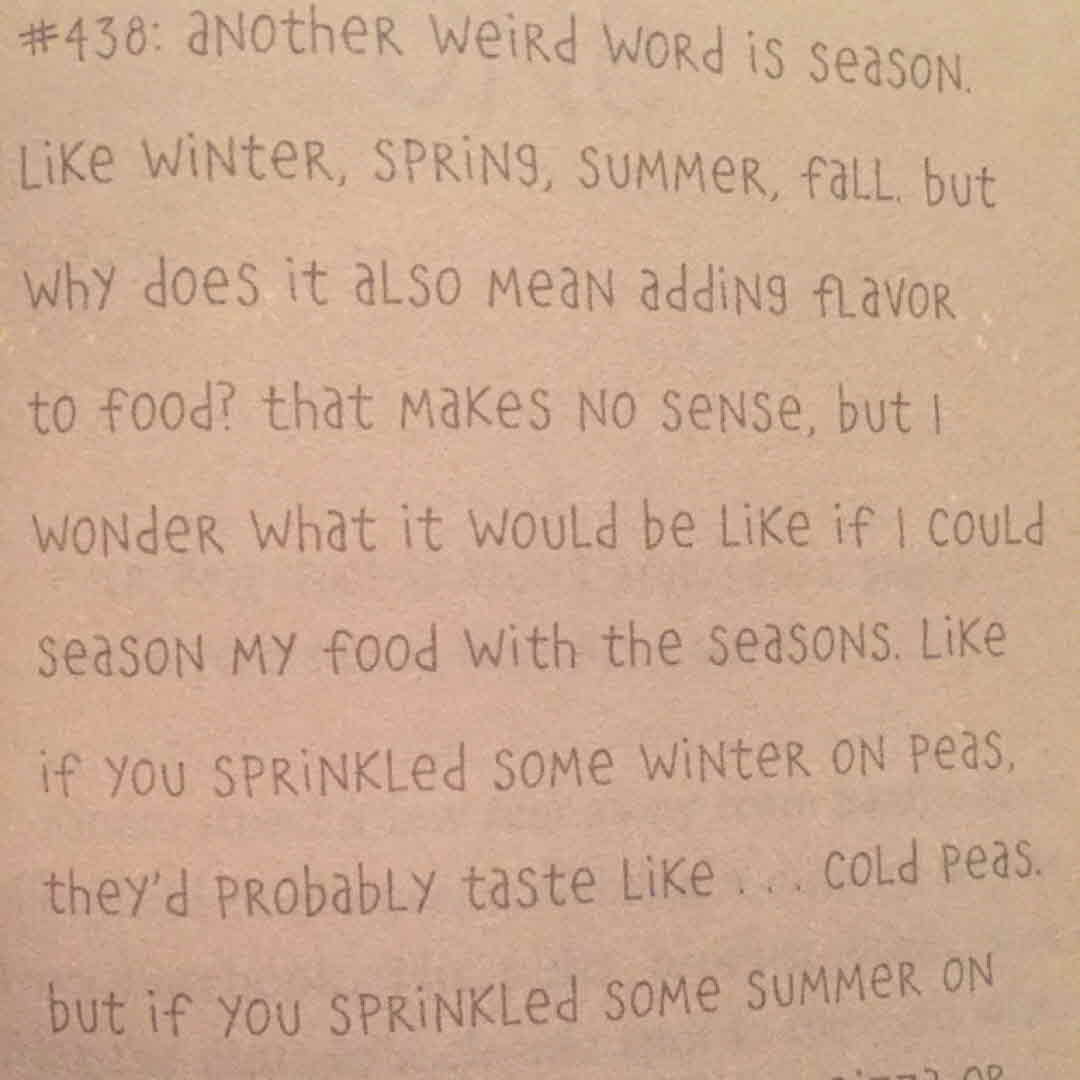 #438: aNOtheR WeiRd WORd is seasON.
Like WiNteR, SPRiNg, SUMMeR, faLL. but
why does it aLSO MeaN addiNg fLavOR
to food? that Makes NO seNse, but I
WONdeR What it WOULd be Like if I COULd
seasON MY food With the seasONS. Like
if YOU SPRiNKLed SOMe WiNteR ON Peas,
they'd PRObabLY taste Like ... COLd Peas.
but if YOU SPRiNKLed SOMe SUMMeR ON
OR